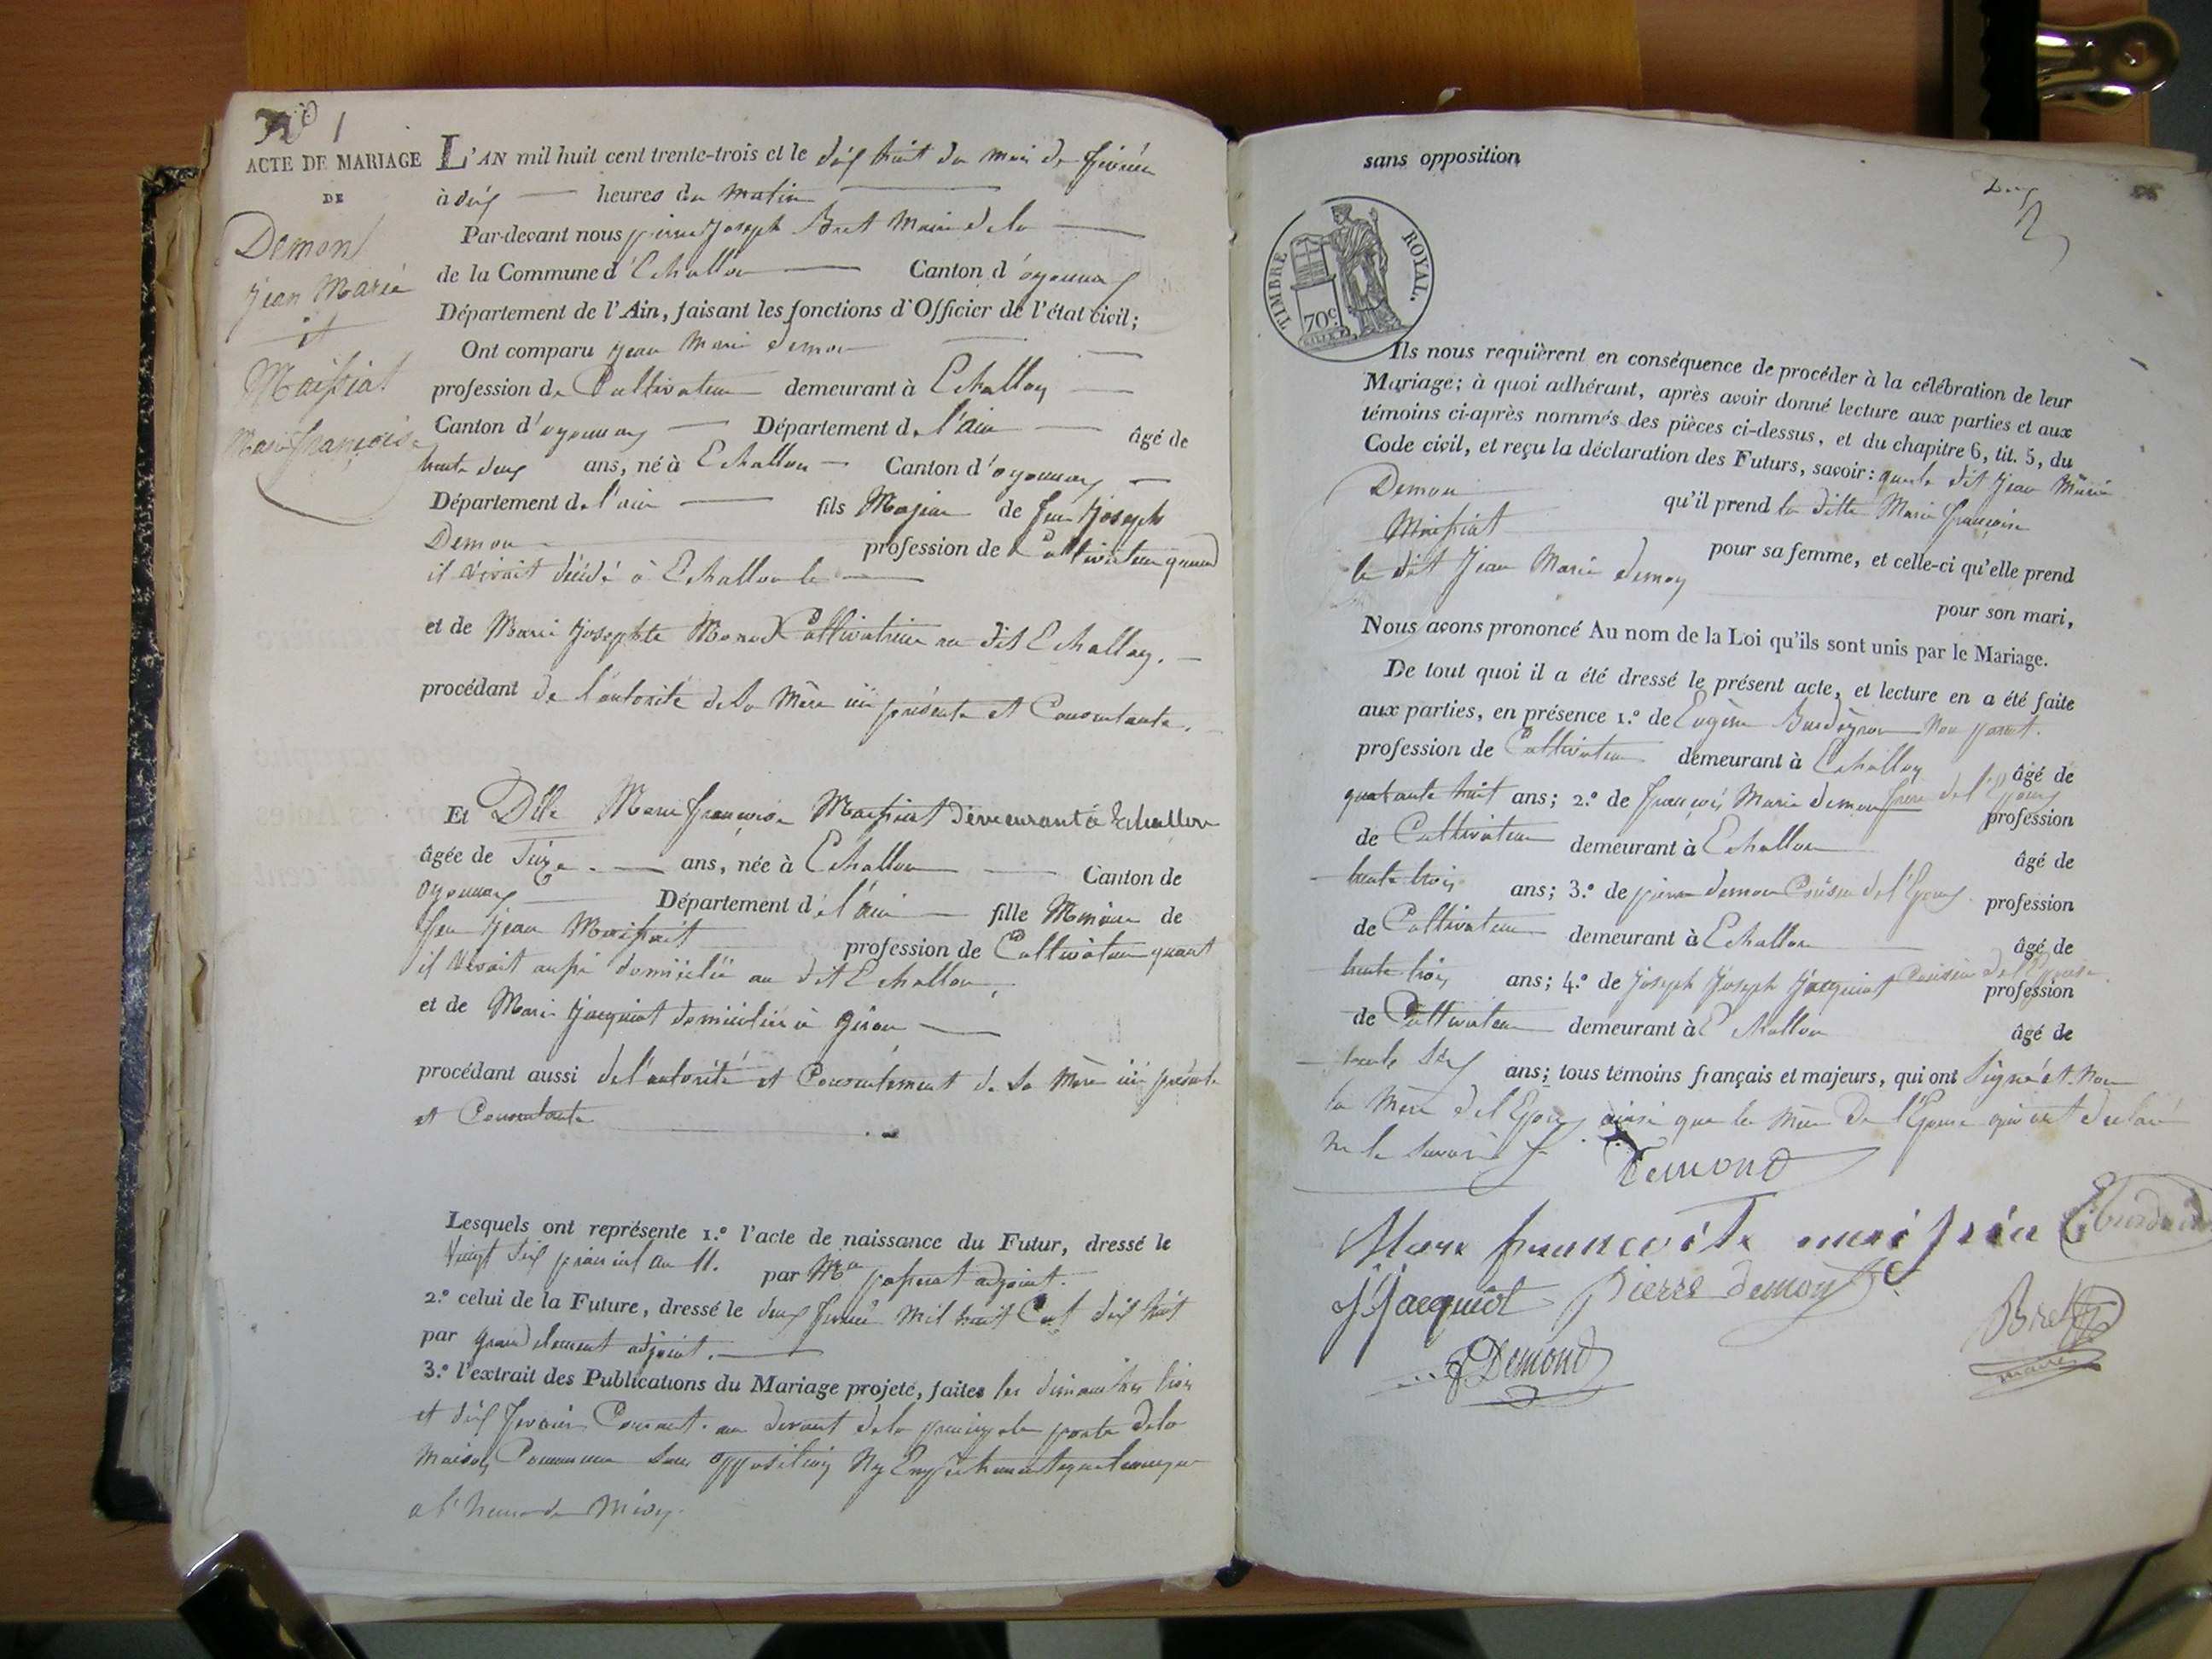 N° 1
ACTE DE MARIAGE
DE
Demon
Jean Marie
et
Maissiat
Marie françoise
L'AN mil huit cent trente-trois et le dix huit du mois de février
à dix heures du matin
Par-devant nous pierre Joseph Bret Maire de la
de la Commune d'Echallon Canton d'oyonnax
Département de l'Ain, faisant les fonctions d'Officier de l'état civil;
Ont comparu Jean Marie demon
profession de Cultivateur demeurant à Echallon
Canton d'oyonnax Département de l'ain âgé de
trente deux ans, né à Echallon Canton d'oyonnax
Département de l'ain fils Majeur de feu Joseph
Demon profession de Cultivateur quand
il vivait décédé à Echallon le
et de Marie Josephte Cultivatrice au dit Echallon.
procédant de l'autorité de sa Mère ici présente et Consentante.
Et Dlle Marie françoise Maissiat demeurant à Echallon
âgée de Seize ans, née à Echallon Canton de
oyonnax Département de l'ain fille Mineure de
feu Jean Maissiat profession de Cultivateur quant
il vivait aussi domicilié au dit Echallon,
et de Marie Jacquiot domiciliée à giron
procédant aussi de l'autorité et Consentement de sa Mère ici présente
et Consentante
Lesquels ont représenté 1.° l'acte de naissance du Futur, dressé le
Vingt six prairial an 11. par adjoint.
2.° celui de la Future, dressé le deux février Mil huit Cent dix huit
par grandclement adjoint.
3.° l'extrait des Publications du Mariage projeté, faites les dimanches trois
et dix fevrier Courant. au devant de la principale porte de la
Maison Commune sans opposition Ny Empêchement quelconque
a l'heure de Midy.
sans opposition
TIMBRE ROYAL.
70c
Ils nous requièrent en conséquence de procéder à la célébration de leur
Mariage; à quoi adhérant, après avoir donné lecture aux parties et aux
témoins ci-après nommés des pièces ci-dessus, et du chapitre 6, tit. 5, du
Code civil, et reçu la déclaration des Futurs, savoir: que le dit Jean Marie
Demon qu'il prend la ditte Marie françoise
Maissiat pour sa femme, et celle-ci qu'elle prend
le dit Jean Marie demon pour son mari,
Nous avons prononcé Au nom de la Loi qu'ils sont unis par le Mariage.
De tout quoi il a été dressé le présent acte, et lecture en a été faite
aux parties, en présence 1.° de Eugène Burdeyron Non parent.
profession de Cultivateur demeurant à Echallon âgé de
quarante huit ans; 2.° de françois Marie demon frère de l'Epoux profession
de Cultivateur demeurant à Echallon âgé de
trente trois ans; 3.° de pierre demon Cousin de l'Epoux profession
de Cultivateur demeurant à Echallon âgé de
trente trois ans; 4.° de Joseph Joseph Jacquiot Cousin de l'Epouse profession
de Cultivateur demeurant à Echallon âgé de
trente six ans; tous témoins français et majeurs, qui ont Signé et Non
la Mère de l'Epoux ainsi que la Mère De l'Epouse qui ont déclaré
Ne le savoir
Demond
Marie francoise maissiia
JJacquiot Pierre demont
Bret
maire
F Demond